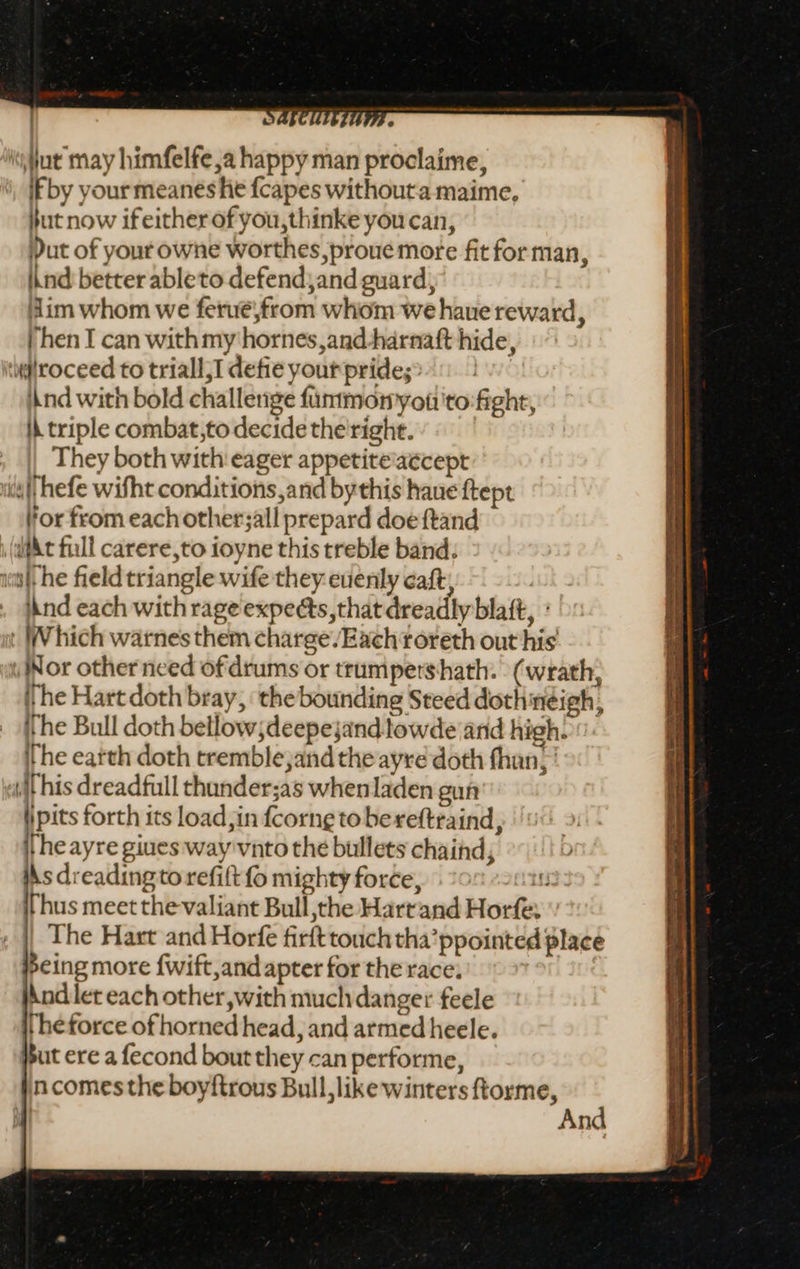 But may himſelfe,a happy man proclaime,
If by your meanes he ſcapes without a maime.
But now if either of you,thinke you can,
Out of your owne worthes,proue more fit for man,
And better able to defend,and guard,
Him whom we ſerue,from whom we haue reward,
Then I can with my hornes,and harnaſt hide,
roceed to triall,I defie your pride;
And with bold challenge ſummon you to fight,
A triple combat,to decide the right.
They both with eager appetite accept
Theſe wiſht conditions,and by this haue ſtept
For from each other;all prepard doe ſtand
At full carere,to ioyne this treble band.
The field triangle wiſe they euenly caſt,
And each with rage expects,that dreadly blaſt,
Which warnes them charge.Each roreth out his
Nor other need of drums or trumpets hath. (wrath,
The Hart doth bray, the bounding Steed doth neigh,
The Bull doth bellow;deepe;and lowde and high.
The earth doth tremble,and the ayre doth ſhun,
This dreadfull thunder;as when laden gun
Spits forth its load,in ſcorne to be reſtraind,
The ayre giues way vnto the bullets chaind,
As dreading to reſiſt ſo mighty force,
Thus meet the valiant Bull,the Hart and Horſe.
The Hart and Horſe firſt touch tha'ppointed place
Being more ſwift,and apter for the race.
And let each other,with much danger feele
The force of horned head, and armed heele.
But ere a ſecond bout they can performe,
In comes the boyſtrous Bull,like winters ſtorme,
And